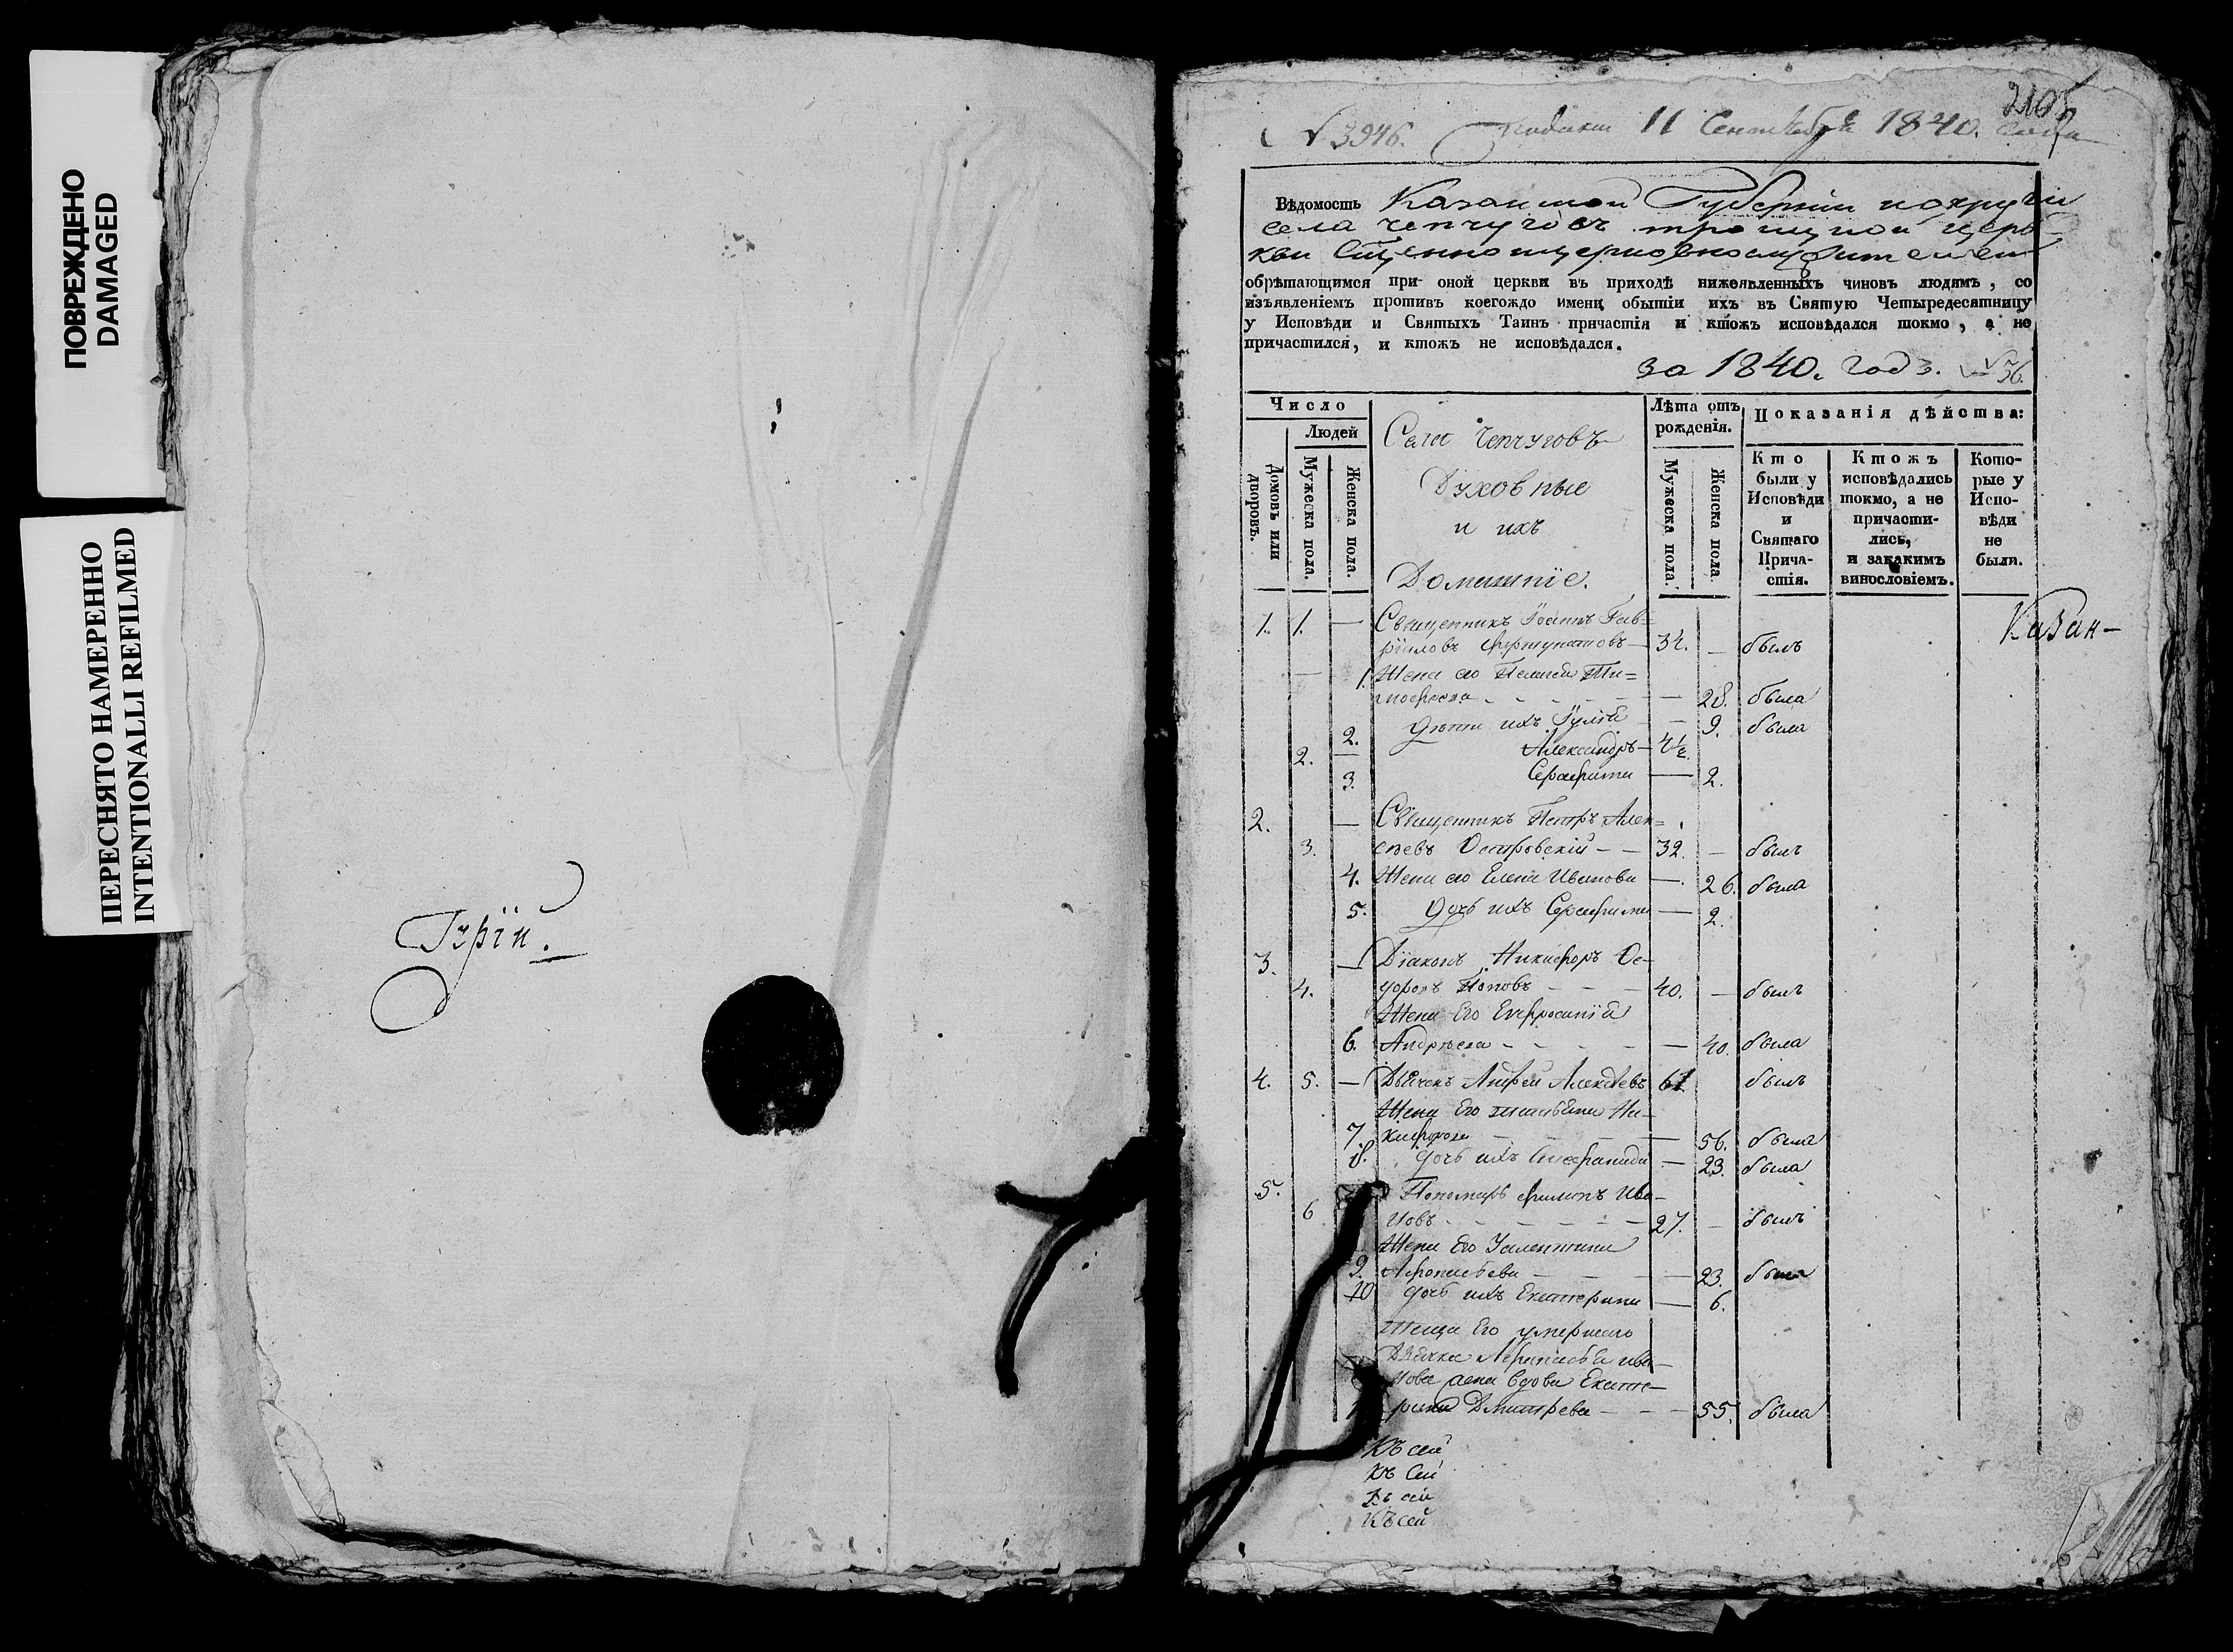 ПОВРЕЖДЕНО
DAMAGED
ПЕРЕСНЯТО НАМЕРЕННО
INTENTIONALLI REFILMED
Гурїй.
2105
№ 3946. 11 Сентября 1840. года
Вѣдомость Казанской Губерніи
села Чепчуговъ троицкой церк-
кви
обрѣтающимся при оной церкви въ приходѣ нижеявленныхъ чиновъ людямъ, со
изъявленіемъ противъ коегождо имени обытіи ихъ въ Святую Четыредесятницу
у Исповѣди и Святыхъ Таинъ причастія и ктожъ исповѣдался токмо, а не
причастился, и ктожъ не исповѣдался.
за 1840. годъ. № 36.
Число
Людей
Домовъ или дворовъ.
Мужеска пола.
Женска пола.
Села Чепчуговъ
Духовные
и ихъ
Домашніе.
Лѣта отъ рожденія.
Мужеска пола.
Женска пола
Показанія дѣйства:
Кто были у Исповѣди и Святаго Причастія.
Ктожъ исповѣдались токмо, а не причастились, и закакимъ винословіемъ.
Которые у Исповѣди не были.
Казан-
1. 1. — Священникъ Іоаннъ Гав=
рїиловъ 34. — былъ
1. Жена его Пелагея Ти=
мофеева — 28. была
2. дѣти ихъ Іулія — 9. была
2. — Александръ — 4½
3. Серафима — 2.
2. — Священникъ Петръ Алек=
3. сѣевъ Островскій — 32. — былъ
4. Жена его Елена Иванова — 26. была
5. дочь ихъ Серафима — 2.
3. — Дїаконъ Никифоръ Ѳе-
4. доровъ Поповъ — 40. — былъ
Жена Его Евфросинїя
6. Андрѣева — 40. была
4. 5. — Дьячекъ Андрей Алексѣевъ 61 былъ
Жена Его Татьяна Ни-
7. кифорова — 56. была
8. дочь ихъ — 23. была
5. Пономарь Филипъ Ива-
6 новъ — 27. — былъ
Жена Его
9. Афонасьева — 23. была
10 дочь ихъ Екатерина — 6.
Теща Его умершаго
Дьячка Афанасья Ива-
нова жена вдова Екате-
рина Дмитрева — 55. была
Къ сей
къ Сей
Къ сей
Къ сей